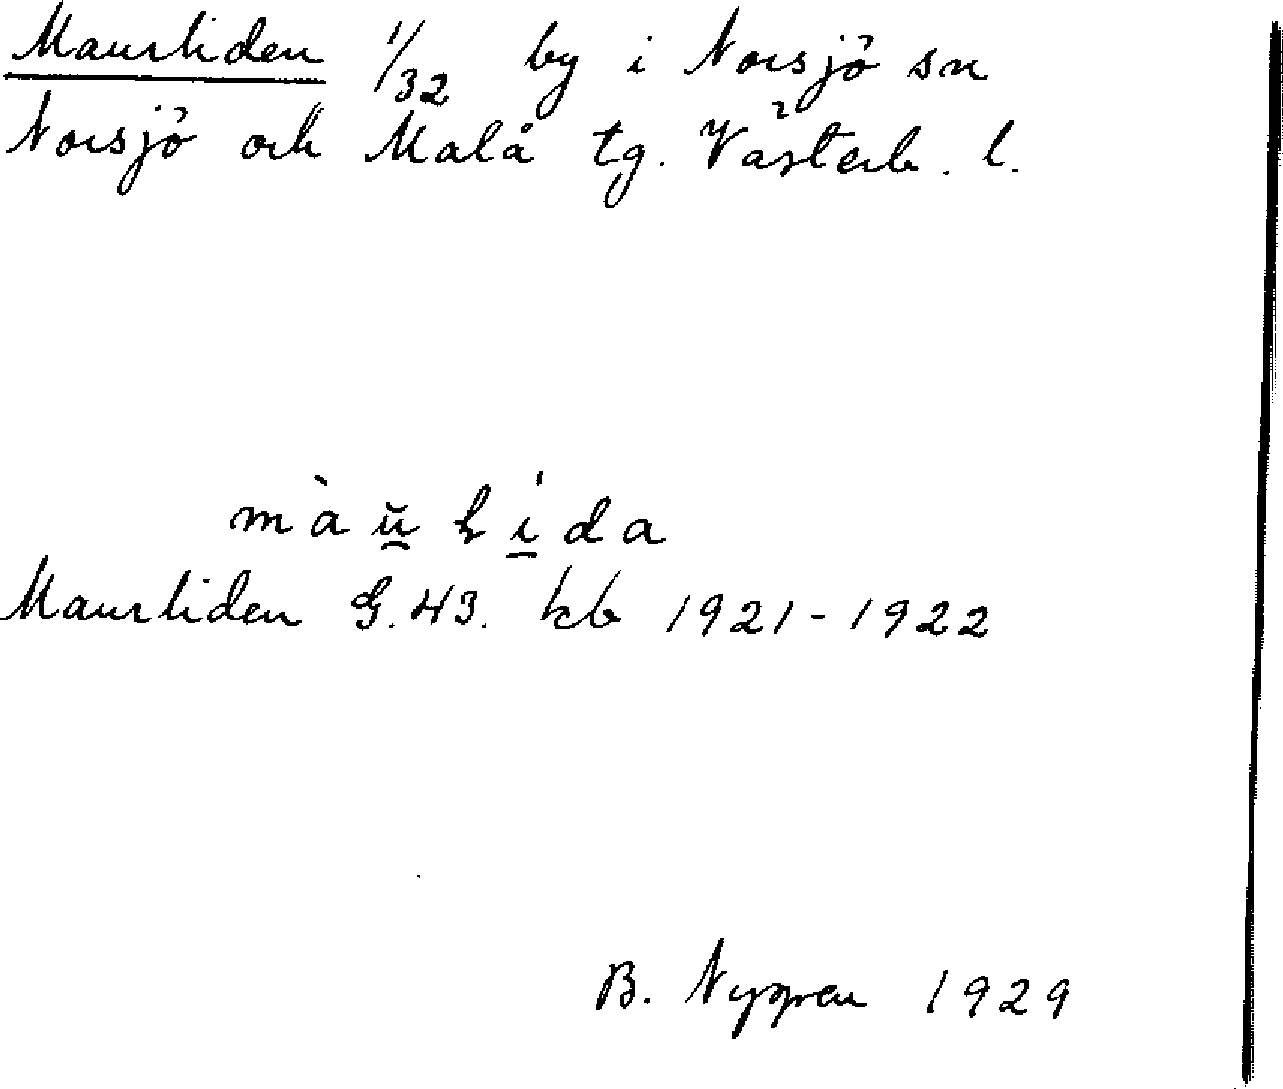 Maurliden 1/32 by i Norsjö sn
Norsjö och Malå tg. Västerb. l.
Maurliden G.43. kb 1921-1922
B. Nygren 1929